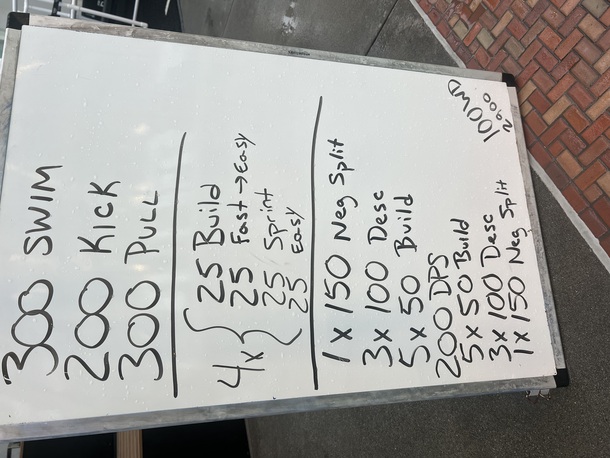 300 SWIM
200 KICK
300 PULL
4x { 25 Build
25 Fast → Easy
25 Sprint
25 Easy
1 x 150 Neg Split
3 x 100 Desc
5 x 50 Build
200 DPS
5 x 50 Build
3 x 100 Desc
1 x 150 Neg Split
100 WD